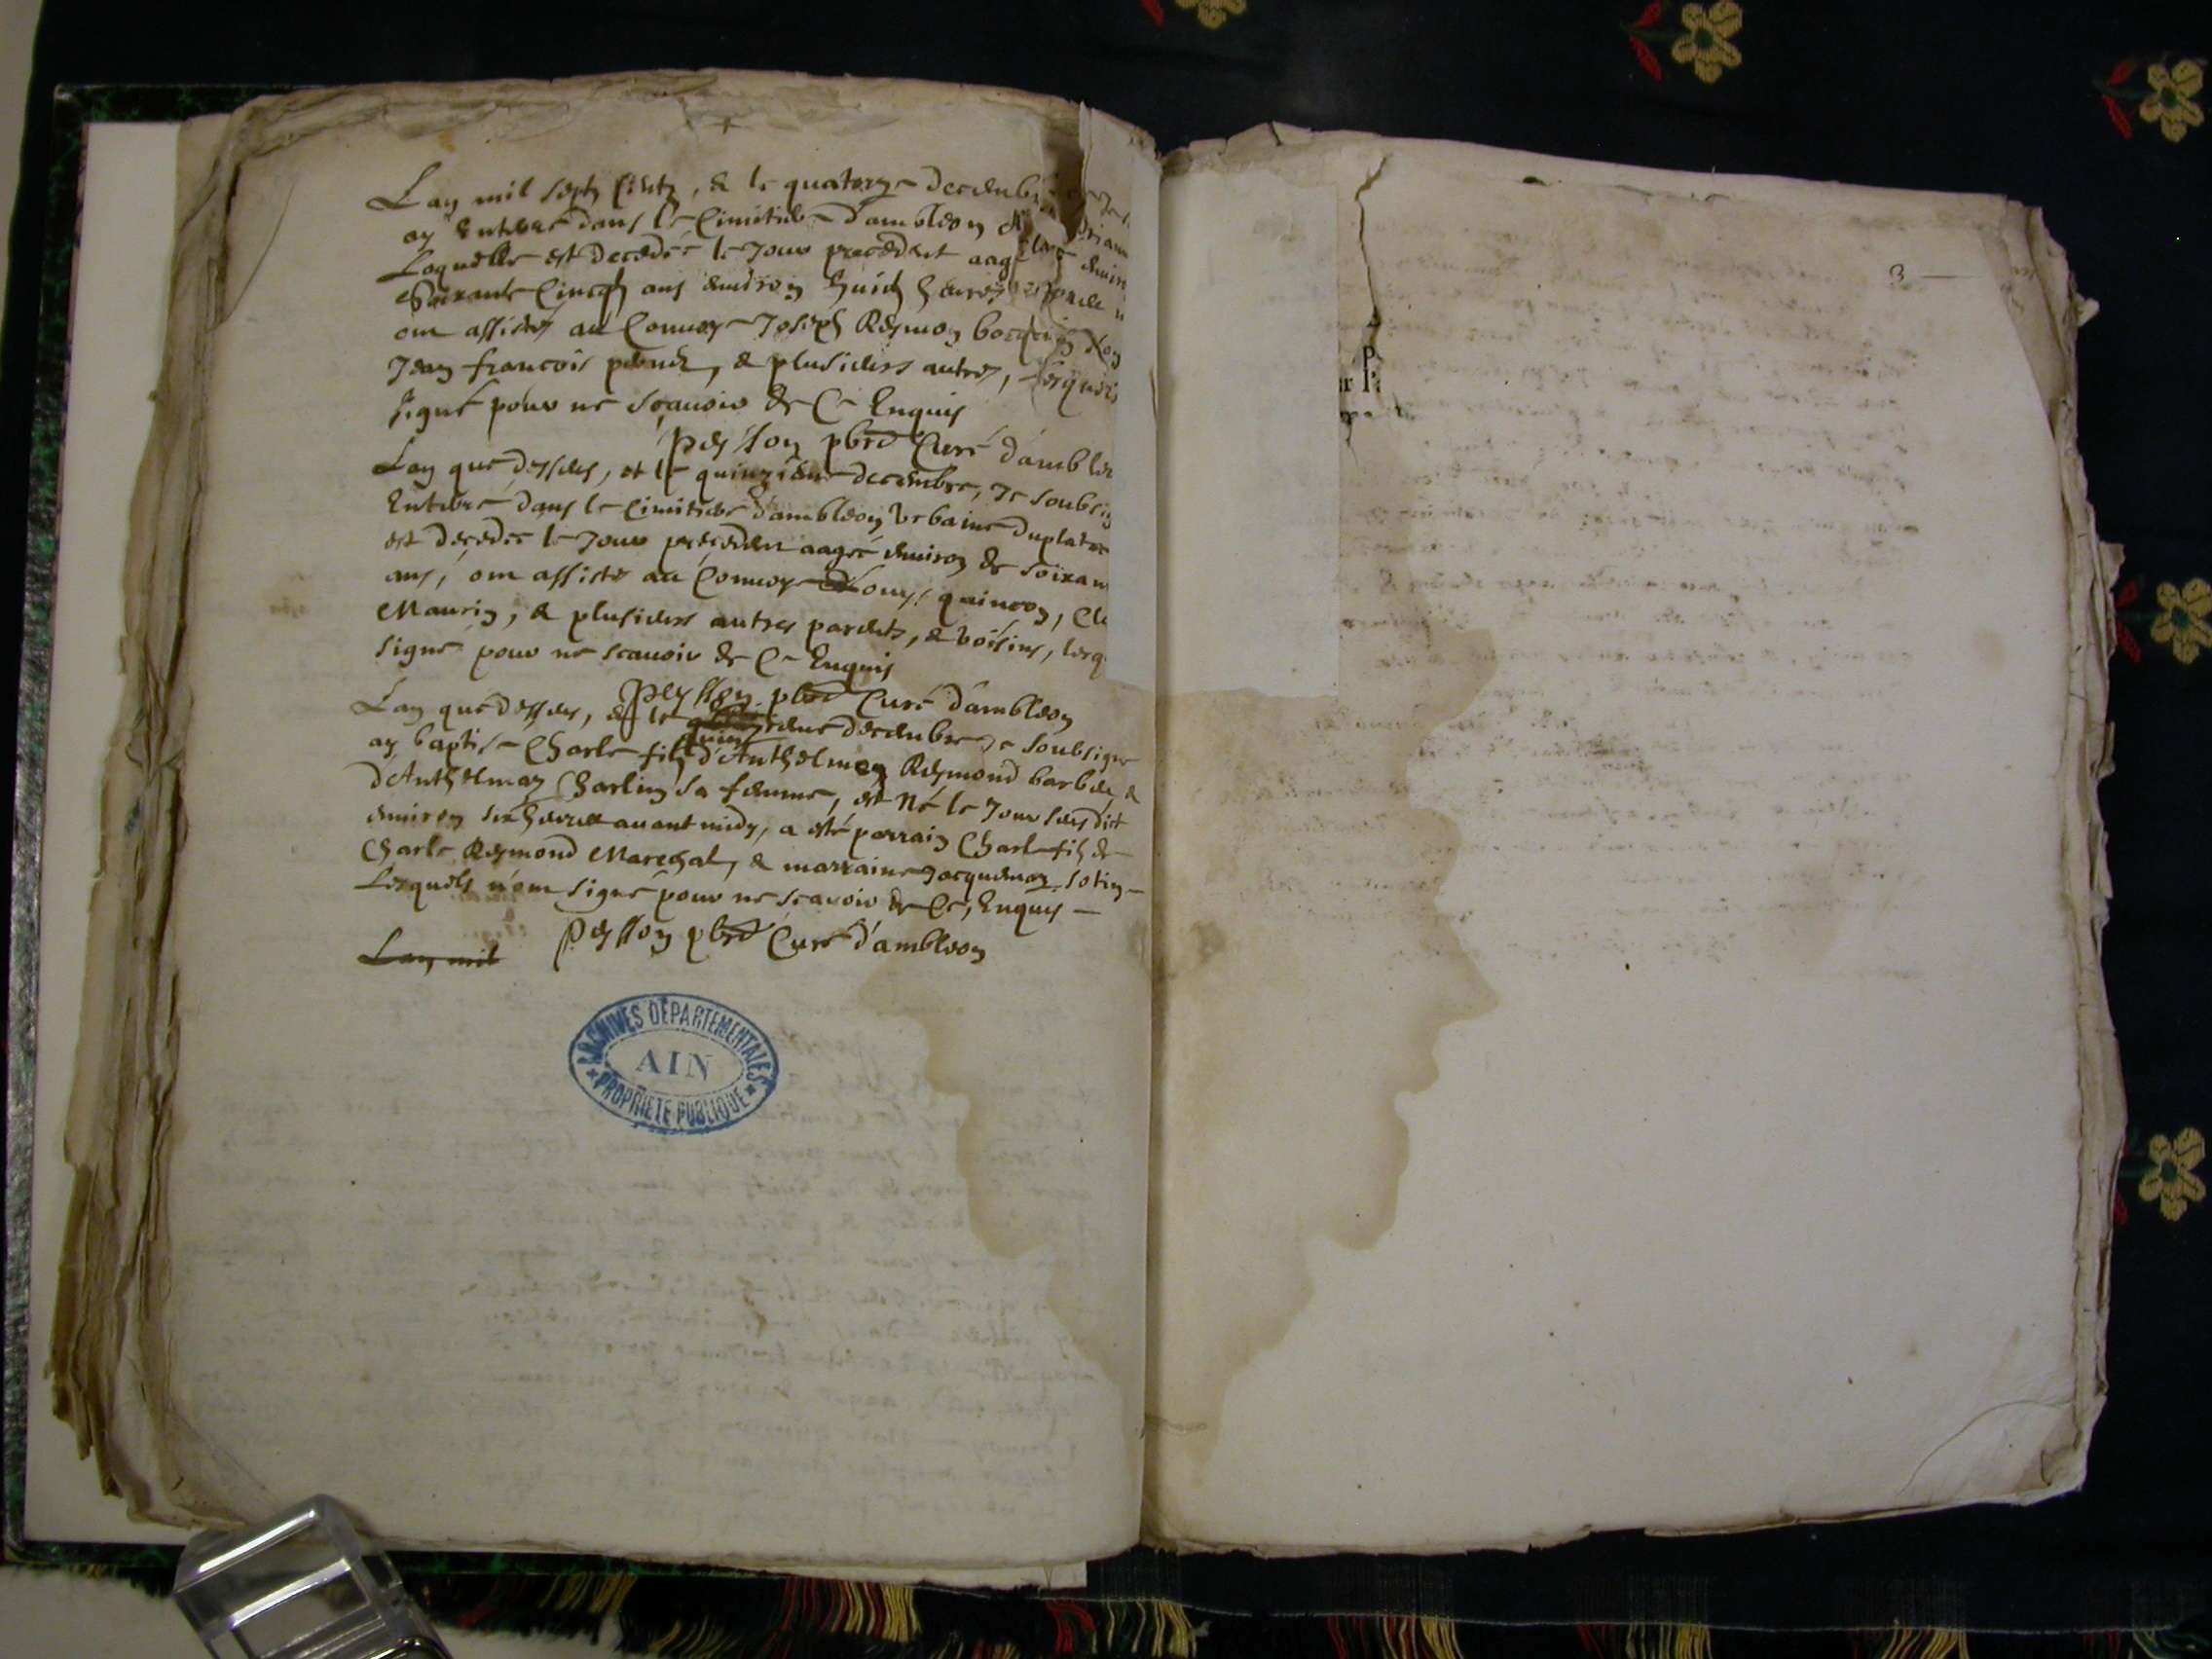 Lan mil sept cents, & le quatorze decemb
ay enterré dans le cimitiere d'ambleon
Laquelle est decedée le Jour precedent aagée
Soixante Cincq ans environ huict heures
ont assistés au Convoy Joseph Reymon
Jean francois & plusieurs autres, lesquels
signé pour ne scavoir de Ce Enquis
Peysson pbre Curé d'amble
Lan que dessus, et le quinzieme decembre, Je soubsig
Enterré dans le cimitiere d'ambleon Urbaine duplat
est decedée le Jour precedent aagée environ de soixan
ans, ont assistés au Convoy Louys quincon, Cl
Maurin, & plusieurs autres parents, & voisins, lesq
signé pour ne scavoir de Ce Enquis
Peysson pbre Curé d'ambleon
Lan que dessus, & le quinzieme decembre Je soubsigné
ay baptisé Charle fils d'Anthelme Reymond barbe, &
d'Anthelmaz Charlin sa femme, est Né le Jour susdict
environ six heures avant midy, a esté parrain Charle fils de
Charle Reymond Marechal, & marraine Jacquemaz sotin
Lesquels n'ont signé pour ne scavoir de Ce, Enquis
Peysson pbre Curé d'ambleon
Lan mil
ARCHIVES DEPARTEMENTALES
AIN
PROPRIETE PUBLIQUE
3